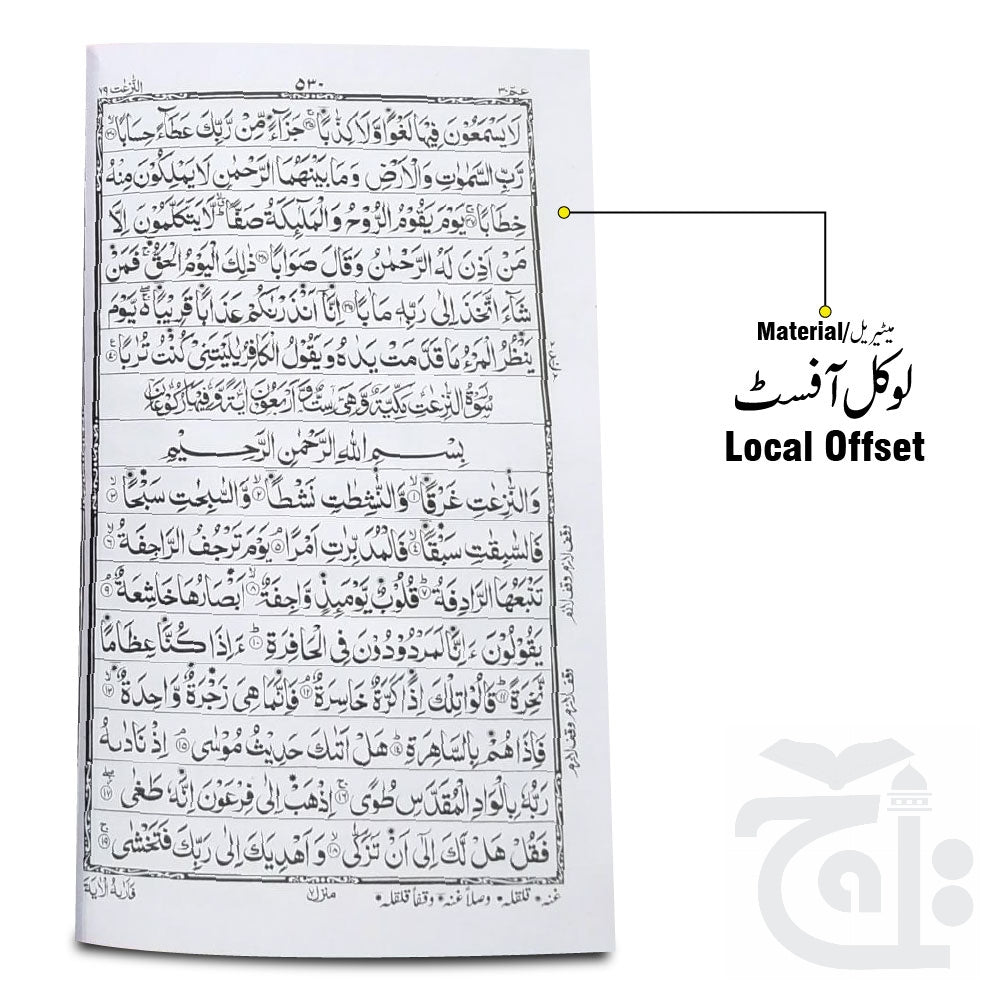 عمّ ٣٠
٥٣٠
النّٰزعٰت ٧٩
لَا يَسْمَعُوْنَ فِيْهَا لَغْوًا وَّلَا كِذّٰبًا ۚ﴿٣٥﴾ جَزَآءً مِّنْ رَّبِّكَ عَطَآءً حِسَابًا ۙ﴿٣٦﴾
رَّبِّ السَّمٰوٰتِ وَالْاَرْضِ وَمَا بَيْنَهُمَا الرَّحْمٰنِ لَا يَمْلِكُوْنَ مِنْهُ
خِطَابًا ۚ﴿٣٧﴾ يَوْمَ يَقُوْمُ الرُّوْحُ وَالْمَلٰٓئِكَةُ صَفًّا ۙۗ لَّا يَتَكَلَّمُوْنَ اِلَّا
مَنْ اَذِنَ لَهُ الرَّحْمٰنُ وَقَالَ صَوَابًا ﴿٣٨﴾ ذٰلِكَ الْيَوْمُ الْحَقُّ ۚ فَمَنْ
شَآءَ اتَّخَذَ اِلٰى رَبِّهٖ مَاٰبًا ﴿٣٩﴾ اِنَّآ اَنْذَرْنٰكُمْ عَذَابًا قَرِيْبًا ۚۖ يَّوْمَ
يَنْظُرُ الْمَرْءُ مَا قَدَّمَتْ يَدٰهُ وَيَقُوْلُ الْكٰفِرُ يٰلَيْتَنِيْ كُنْتُ تُرٰبًا ﴿٤٠﴾
سُوْرَةُ النّٰزِعٰتِ مَكِّيَّةٌ وَّهِيَ سِتٌّ وَّاَرْبَعُوْنَ اٰيَةً وَّفِيْهَا رُكُوْعَانِ
بِسْمِ اللهِ الرَّحْمٰنِ الرَّحِيْمِ
وَالنّٰزِعٰتِ غَرْقًا ۙ﴿١﴾ وَّالنّٰشِطٰتِ نَشْطًا ۙ﴿٢﴾ وَّالسّٰبِحٰتِ سَبْحًا ۙ﴿٣﴾
فَالسّٰبِقٰتِ سَبْقًا ۙ﴿٤﴾ فَالْمُدَبِّرٰتِ اَمْرًا ۘ﴿٥﴾ يَوْمَ تَرْجُفُ الرَّاجِفَةُ ۙ﴿٦﴾
تَتْبَعُهَا الرَّادِفَةُ ۗ﴿٧﴾ قُلُوْبٌ يَّوْمَئِذٍ وَّاجِفَةٌ ۙ﴿٨﴾ اَبْصَارُهَا خَاشِعَةٌ ۘ﴿٩﴾
يَقُوْلُوْنَ ءَاِنَّا لَمَرْدُوْدُوْنَ فِي الْحَافِرَةِ ۗ﴿١٠﴾ ءَاِذَا كُنَّا عِظَامًا
نَّخِرَةً ۗ﴿١١﴾ قَالُوْا تِلْكَ اِذًا كَرَّةٌ خَاسِرَةٌ ۘ﴿١٢﴾ فَاِنَّمَا هِيَ زَجْرَةٌ وَّاحِدَةٌ ۙ﴿١٣﴾
فَاِذَا هُمْ بِالسَّاهِرَةِ ۗ﴿١٤﴾ هَلْ اَتٰىكَ حَدِيْثُ مُوْسٰى ۘ﴿١٥﴾ اِذْ نَادٰىهُ
رَبُّهٗ بِالْوَادِ الْمُقَدَّسِ طُوًى ۚ﴿١٦﴾ اِذْهَبْ اِلٰى فِرْعَوْنَ اِنَّهٗ طَغٰى ۖ﴿١٧﴾
فَقُلْ هَلْ لَّكَ اِلٰٓى اَنْ تَزَكّٰى ۙ﴿١٨﴾ وَاَهْدِيَكَ اِلٰى رَبِّكَ فَتَخْشٰى ۚ﴿١٩﴾
وقف لازم وقف لازم
وقف لازم وقف لازم
غنہ• قلقلہ• وصلاً غنہ• وقفاً قلقلہ•
منزل ٧
فَاَرٰىهُ الْاٰيَةَ
Material/میٹیریل
لوکل آفسٹ
Local Offset